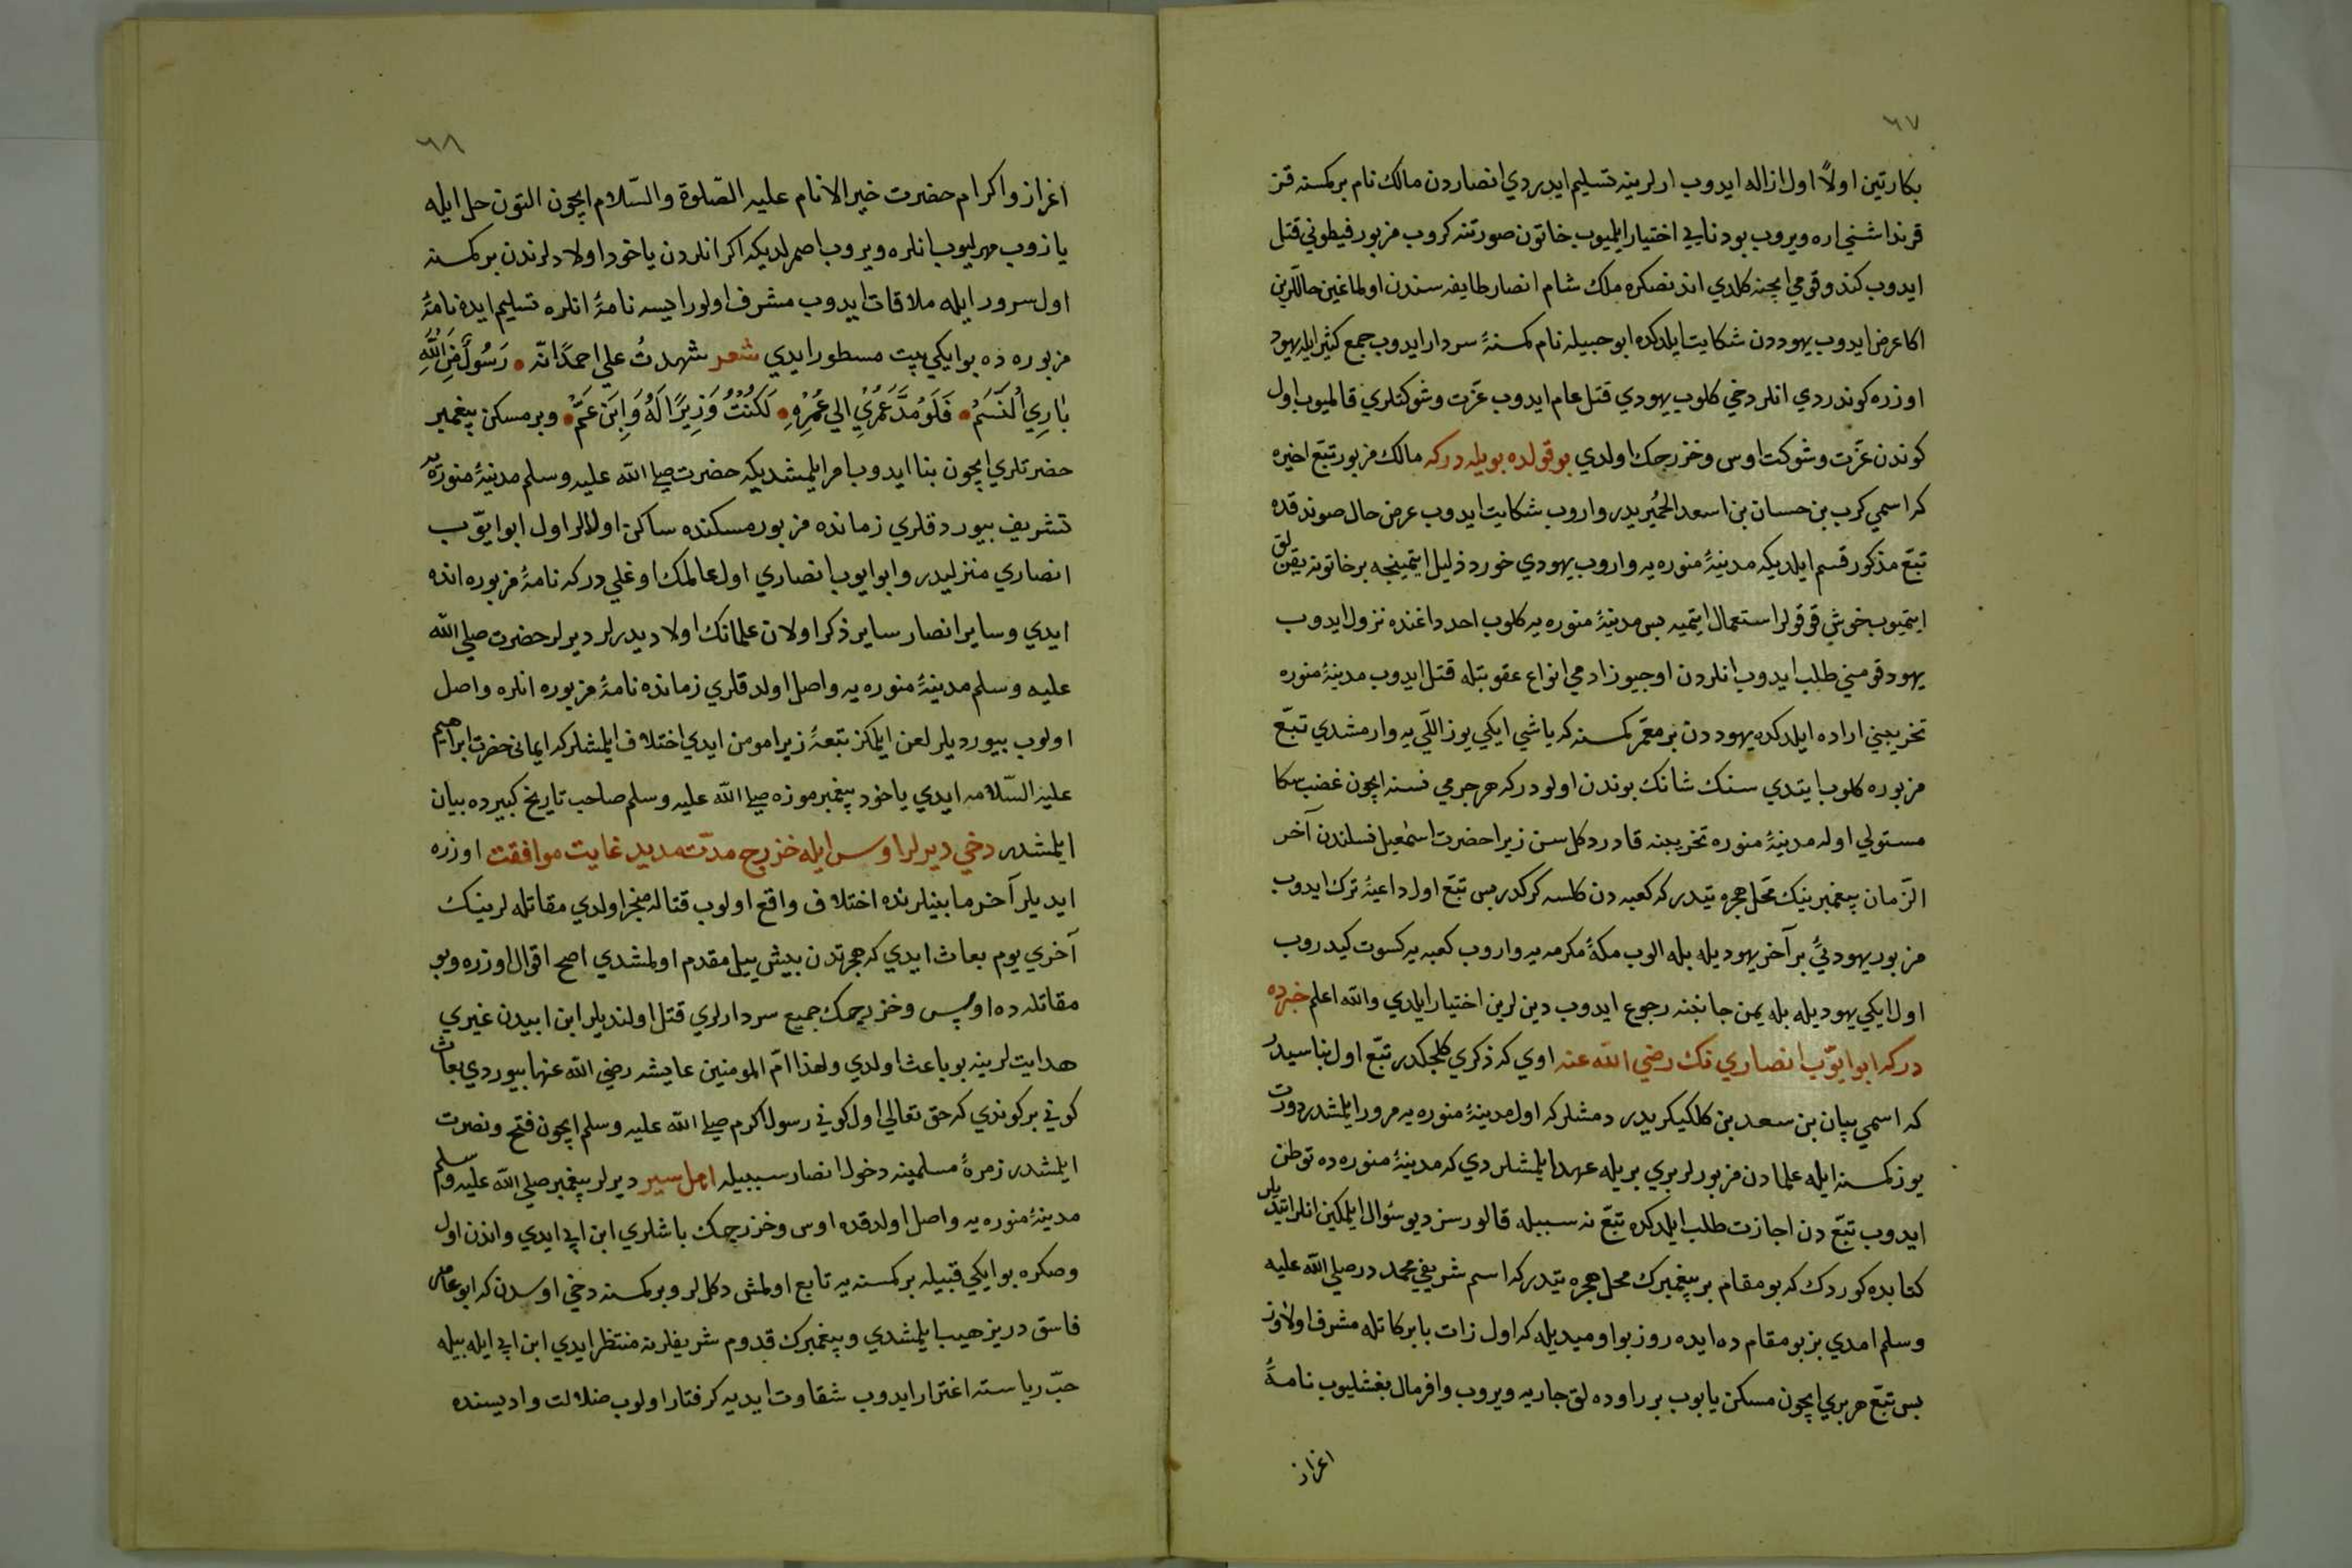 ٦٧
بكارتين اولاً اول ازاله ايدوب ارلرينه تسليم ايدردي انصاردن مالك نام بركمسنه قز
قرنداشني اره ويروب بو دنايي اختيار ايلميوب خاتون صورتنه كروب مزبور فيطوني قتل
ايدوب كندو قومي ايچنه كلدي اندنصكره ملك شام انصار طايفه سندن اولماغين حاللرين
اكا عرض ايدوب يهوددن شكايت ايلدكده ابو جبيله نام كمسنهٔ سردار ايدوب جمع كثير ايله يهود
اوزره كوندردي انلر دخي كلوب يهودي قتل عام ايدوب عزّت وشوكتلري قالميوب اول
كوندن عزّت وشوكت اوس وخزرجك اولدي بو قولده بويله دركه مالك مزبور تبّع اخيره
كه اسمي كرب بن حسان بن اسعد الحُميريدر واروب شكايت ايدوب عرض حال صوندقده
تبّع مذكور قسم ايلديكه مدينهٔ منوره يه واروب يهودي خورد ذليل ايتمينجه برخاتونه يقنلق
ايتميوب خوش قوقولر استعمال ايتميه بس مدينهٔ منوره يه كلوب احد داغنده نزول ايدوب
يهود قومني طلب ايدوب انلردن اوچيوز ادمي انواع عقوبتله قتل ايدوب مدينهٔ منوره
تخريبني اراده ايلدكده يهوددن بر معمّر كمسنه كه ياشي ايكي يوز اللّي يه وارمشدي تبّع
مزبوره كلوب ايتدي سنك شانك بوندن اولودركه هر جرمي نسنه ايچون غضب سكا
مستولي اوله مدينهٔ منوره تخريبنه قادر دكلسن زيرا حضرت اسمٰعيل نسلندن آخر
الزّمان پيغمبرينك محلّ هجره تيدركه كعبه دن كلسه كركدر بس تبّع اول داعيهٔ ترك ايدوب
مزبور يهوديئ بر آخر يهوديله بله الوب مكهٔ مكرمه يه واروب كعبه يه كسوت كيدروب
اول ايكي يهوديله بله يمن جانبنه رجوع ايدوب دين لرين اختيار ايلدي والله اعلم خبرده
دركه ابو ايوّب انصاري نك رضي الله عنه اوي كه ذكري كلجكدر تبّع اول بناسيدر
كه اسمي بيان بن سعد بن كلكيكربدر دمشلركه اول مدينهٔ منوره يه مرور ايلمشدر دورت
يوز كمسنه ايله علمادن مزبورلر بري بريله عهد ايلمشلردي كه مدينهٔ منوره ده توطن
ايدوب تبّع دن اجازت طلب ايلدكده تبّع نه سببله قالورسز ديو سئوال ايلمكين انلر ايتديلر
كتابده كوردك كه بو مقام بر پيغمبرك محل هجره تيدركه اسم شريفي محمد در صلي الله عليه
وسلم امدي بز بو مقام ده ايده روز بو اوميديله كه اول زات بابركاتله مشرف اولاوز
بس تبّع هر بري ايچون مسكن يابوب برر اوده لق جاريه ويروب وافر مال بغشليوب نامهٔ
اغزاز
٦٨
اغزاز واكرام حضرت خير الانام عليه الصّلوة والسّلام ايچون التون حل ايله
يازوب مهرليوب انلره ويروب اصمرلديكه اكر انلردن ياخود اولادلرندن بر كمسنه
اول سرور ايله ملاقات ايدوب مشرف اولور ايسه نامهٔ انلره تسليم ايده نامهٔ
مزبوره ده بو ايكي بيت مسطور ايدي شعر شهدتُ علي احمدٍ انّه • رَسُولٌ مِنَ اللّٰهِ
بٰارِي اُلنَّسَمْ • فَلَوْ مُدَّ عَمْرِي الي عُمْرِهِ • لَكُنْتُ وَزِيرًا لَهُ وَابِنَ عَمّْ • وبر مسكن پيغمبر
حضرتلري ايچون بنا ايدوب امر ايلمشديكه حضرت صلي الله عليه وسلم مدينهٔ منوره يه
تشريف بيوردقلري زمانده مزبور مسكنده ساكن اولالر اول ابو ايوّب
انصاري منزليدر وابو ايوب انصاري اول عالمك اوغلي دركه نامهٔ مزبوره انده
ايدي وساير انصار ساير ذكر اولان علمانك اولاديدرلر ديرلر حضرت صلي الله
عليه وسلم مدينهٔ منوره يه واصل اولدقلري زمانده نامهٔ مزبوره انلره واصل
اولوب بيورديلر لعن ايلمكز تبعهٔ زيرا مومن ايدي اختلاف ايلمشلركه ايماني حضرت ابراهيم
عليه السّلامه ايدي ياخود پيغمبرموزه صلي الله عليه وسلم صاحب تاريخ كبيرده بيان
ايلمشدر دخي ديرلر اوس ايله خزرج مدّت مديد غايت موافقت اوزره
ايديلر آخر مابينلرنده اختلاف واقع اولوب قتاله منجز اولدي مقاتله لرينك
آخري يوم بعاث ايدي كه هجرتدن بيش ييل مقدم اولمشدي اصح اقوال اوزره وبو
مقاتله ده اوس وخزرجك جميع سردارلري قتل اولنديلر ابن ابيدن غيري
هدايت لرينه بو باعث اولدي ولهذا امّ المومنين عايشه رضي الله عنها بيوردي بعاث
كوني بر كوندي كه حق تعالي اول كوني رسول اكرم صلي الله عليه وسلم ايچون فتح ونصرت
ايلمشدر زمرهٔ مسلمينه دخول انصار سببيله اهل سير ديرلر پيغمبر صلي الله عليه وسلم
مدينهٔ منوره يه واصل اولدقده اوس وخزرجك باشلري ابن ابي ايدي واندن اول
وصكره بو ايكي قبيله بر كمسنه يه تابع اولمش دكللر وبر كمسنه دخي اوسدن كه ابو عامر
فاسق دريز هيب ايلمشدي وپيغمبرك قدوم شريفلرنه منتظر ايدي ابن ابي ايله بيله
حبّ رياسته اغترار ايدوب شقاوت ابديه كرفتار اولوب ضلالت واديسنده